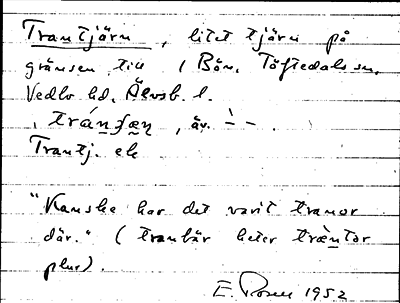 Trantjärn, litet tjärn på
gränsen till 1 Bön, Töftedals sn,
Vedbo hd, Älvsb. l.
, äv.
Trantj. ek
"Kanske har det varit tranor
där." (tranbär heter
plur).
E. Rosen 1952